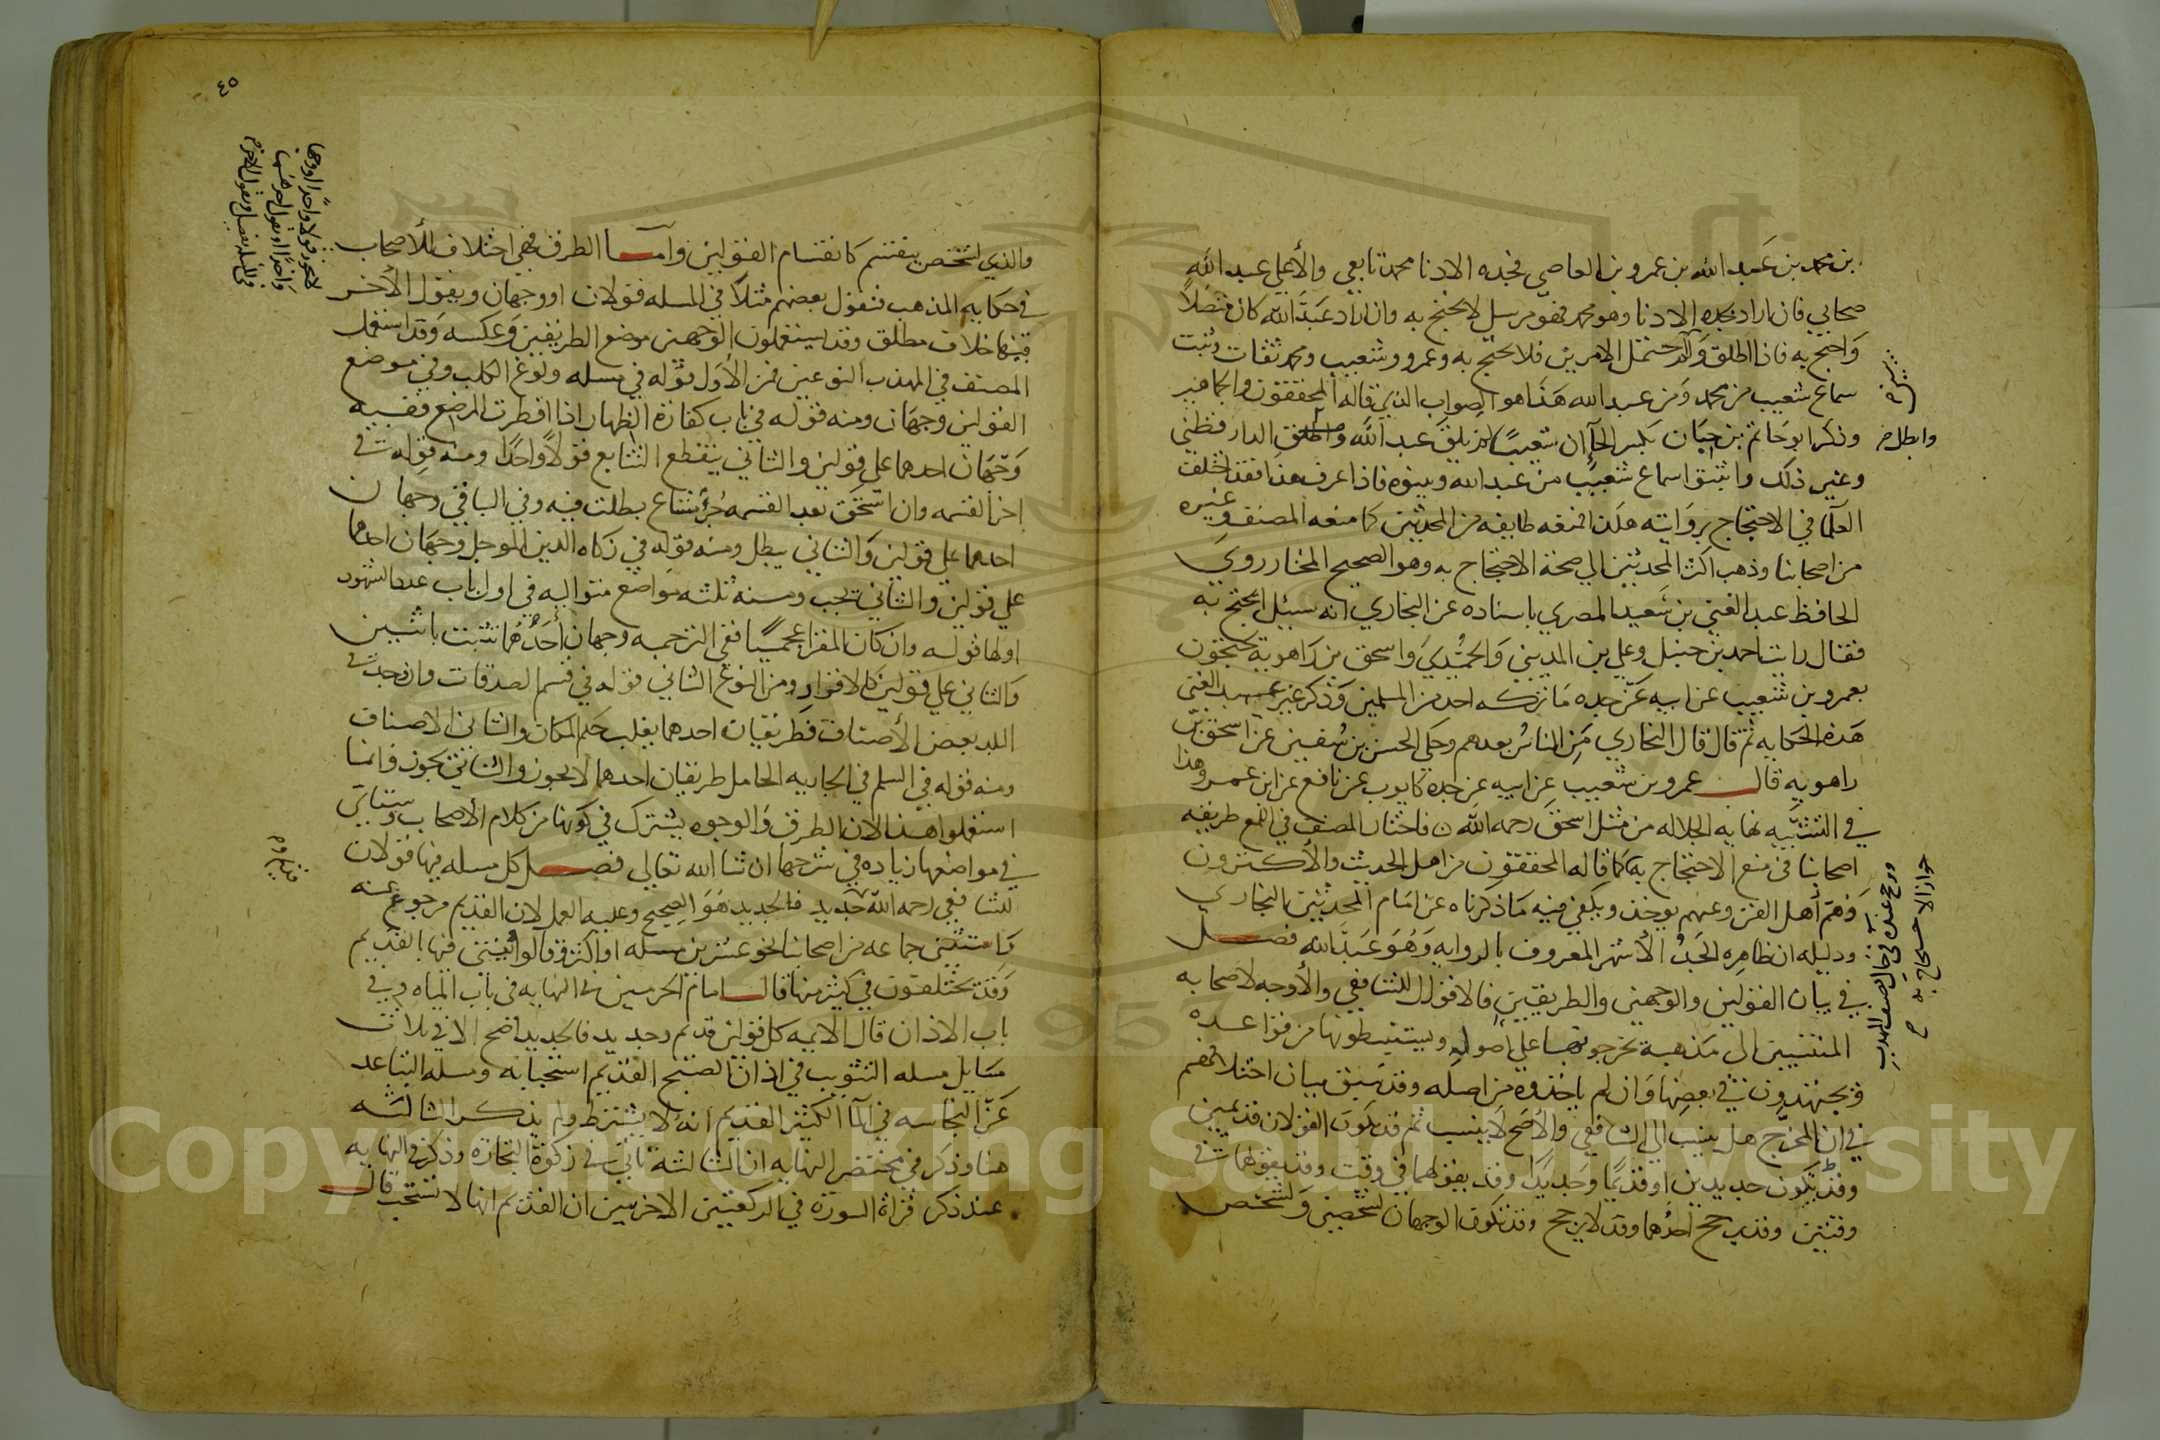 بن محمد بن عبد الله بن عمرو بن العاصي فجده الادنا محمد تابعي والأعلي عبد الله
صحابي فان اراد بجده الادنا وهو محمد فهو مرسل لا يحتج به وان اراد عبد الله كان متصلا
واحتج به فاذا اطلق ولم احتمل الامرين فلا يحتج به وعمرو وشعيب ومحمد ثقات وثبت
سماع شعيب من محمد ومن عبد الله هذا هو الصواب الذي قاله المحققون والجماهير
وذكر ابو حاتم بن حبان بكسر الحاء ان شعيبا لم يلق عبد الله الدارقطني
وابطل
وغير ذلك واثبتوا سماع شعيب من عبد الله وبينوه فاذا عرف هذا فقد اختلف
العلما في الاحتجاج بروايته هكذا فمنعه طايفه من المحدثين كما منعه المصنف وغيره
من اصحابنا وذهب اكثر المحدثين الي صحة الاحتجاج به وهو الصحيح المختار روي
الحافظ عبد الغني بن سعيد المصري باسناده عن البخاري انه سيل ايحتج به
فقال رايت احمد بن حنبل وعلي بن المديني والحميدي واسحق بن راهويه يحتجون
بعمرو بن شعيب عن ابيه عن جده ما تركه احد من المسلمين وذكر غير عبد الغني
هذه الحكايه ثم قال قال البخاري من الناس بعدهم وحكي الحسن بن سفين عن اسحق بن
راهويه قال عمرو بن شعيب عن ابيه عن جده كايوب عن نافع عن ابن عمر وهذا
في التشبيه نهايه الجلاله من مثل اسحق رحمه الله فاختار المصنف في اللمع طريقه
اصحابنا في منع الاحتجاج به كما قاله المحققون من اهل الحديث والأكثرون
وهم أهل الفن وعنهم يوخذ ويكفي فيه ما ذكرناه عن امام المحدثين البخاري
ودليله ان ظاهره الجد الأشهر المعروف بالروايه وهو عبد الله فصل
في بيان القولين والوجهين والطريقين فالاقوال للشافعي والأوجه لاصحابه
المنتسبين الي مذهبه يخرجونها علي اصوله ويستنبطونها من قواعده
ويجتهدون في بعضها وان لم ياخذوه من اصله وقد سبق بيان اختلافهم
في ان المخرج هل ينسب الي الشافعي والأصح لا ينسب ثم قد يكون القولان قديمين
وقد يكون جديدين او قديما وجديدا وقد يقولهما في وقت وقد يقولهما في
وقتين وقد يرجح احدهما وقد لا يرجح وقد تكون الوجهان لشخصين ولشخص
ورجح عنده في حال تصنيف المهذب
جواز الاحتجاج به
٤٥
والذي لشخص ينقسم كانقسام القولين وأما الطرق فهي اختلاف الأصحاب
في حكايه المذهب فيقول بعضهم مثلا في المسله قولان او وجهان ويقول الآخر
فيها خلاف مطلق وقد يستعملون الوجهين موضع الطريقين وعكسه وقد استعمل
المصنف في المهذب النوعين فمن الأول قوله في مسله ولوغ الكلب وفي موضع
القولين وجهان ومنه قوله في باب كفارة الظهار اذا افطرت المرضع ففيه
وجهان احدهما علي قولين والثاني ينقطع التتابع قولا واحدا ومنه قوله في
اخر القسمه وان استحق بعد القسمه جزء مشاع بطلت فيه وفي الباقي وجهان
احدهما علي قولين والثاني يبطل ومنه قوله في زكاه الدين الموجل وجهان احدهما
علي قولين والثاني يجب ومنه ثلثه مواضع متواليه في اول باب عدد الشهود
اولها قوله وان كان المقر اعجميا ففي الترجمه وجهان أحدهما تثبت باثنين
والثاني علي قولين كالاقرار ومن النوع الثاني قوله في قسم الصدقات وان وجد في
البلد بعض الأصناف فطريقان احدهما يغلب حكم المكان والثاني الاصناف
ومنه قوله في السلم في الجاريه الحامل طريقان احدهما لا يجوز والثاني يجوز وانما
استعملوا هذا لان الطرق والوجوه يشترك في كونها من كلام الأصحاب وستاتي
في مواضعها زياده في شرحها ان شا الله تعالي فصل كل مسله فيها قولان
للشافعي رحمه الله جديد فالجديد هو الصحيح وعليه العمل لان القديم مرجوع عنه
واستثني جماعه من اصحابنا نحو عشرين مسله او اكثر وقالوا يفتي فيها بالقديم
وقد يختلفون في كثير منها قال امام الحرمين في النهايه في باب المياه وفي
باب الاذان قال الايمه كل قولين قديم وجديد فالجديد اصح الا في ثلاث
مسايل مسله التثويب في اذان الصبح القديم استحبابه ومسله التباعد
عن النجاسه في الما الكثير القديم انه لا يشترط ولم يذكر الثالثه
هنا وذكر في مختصر النهايه ان الثالثه تاتي في زكوة التجارة وذكر في النهايه
عند ذكر قراة السورة في الركعتين الاخريين ان القديم انها لا تستحب قال
قديم و
Copyright © King Saud University
1957